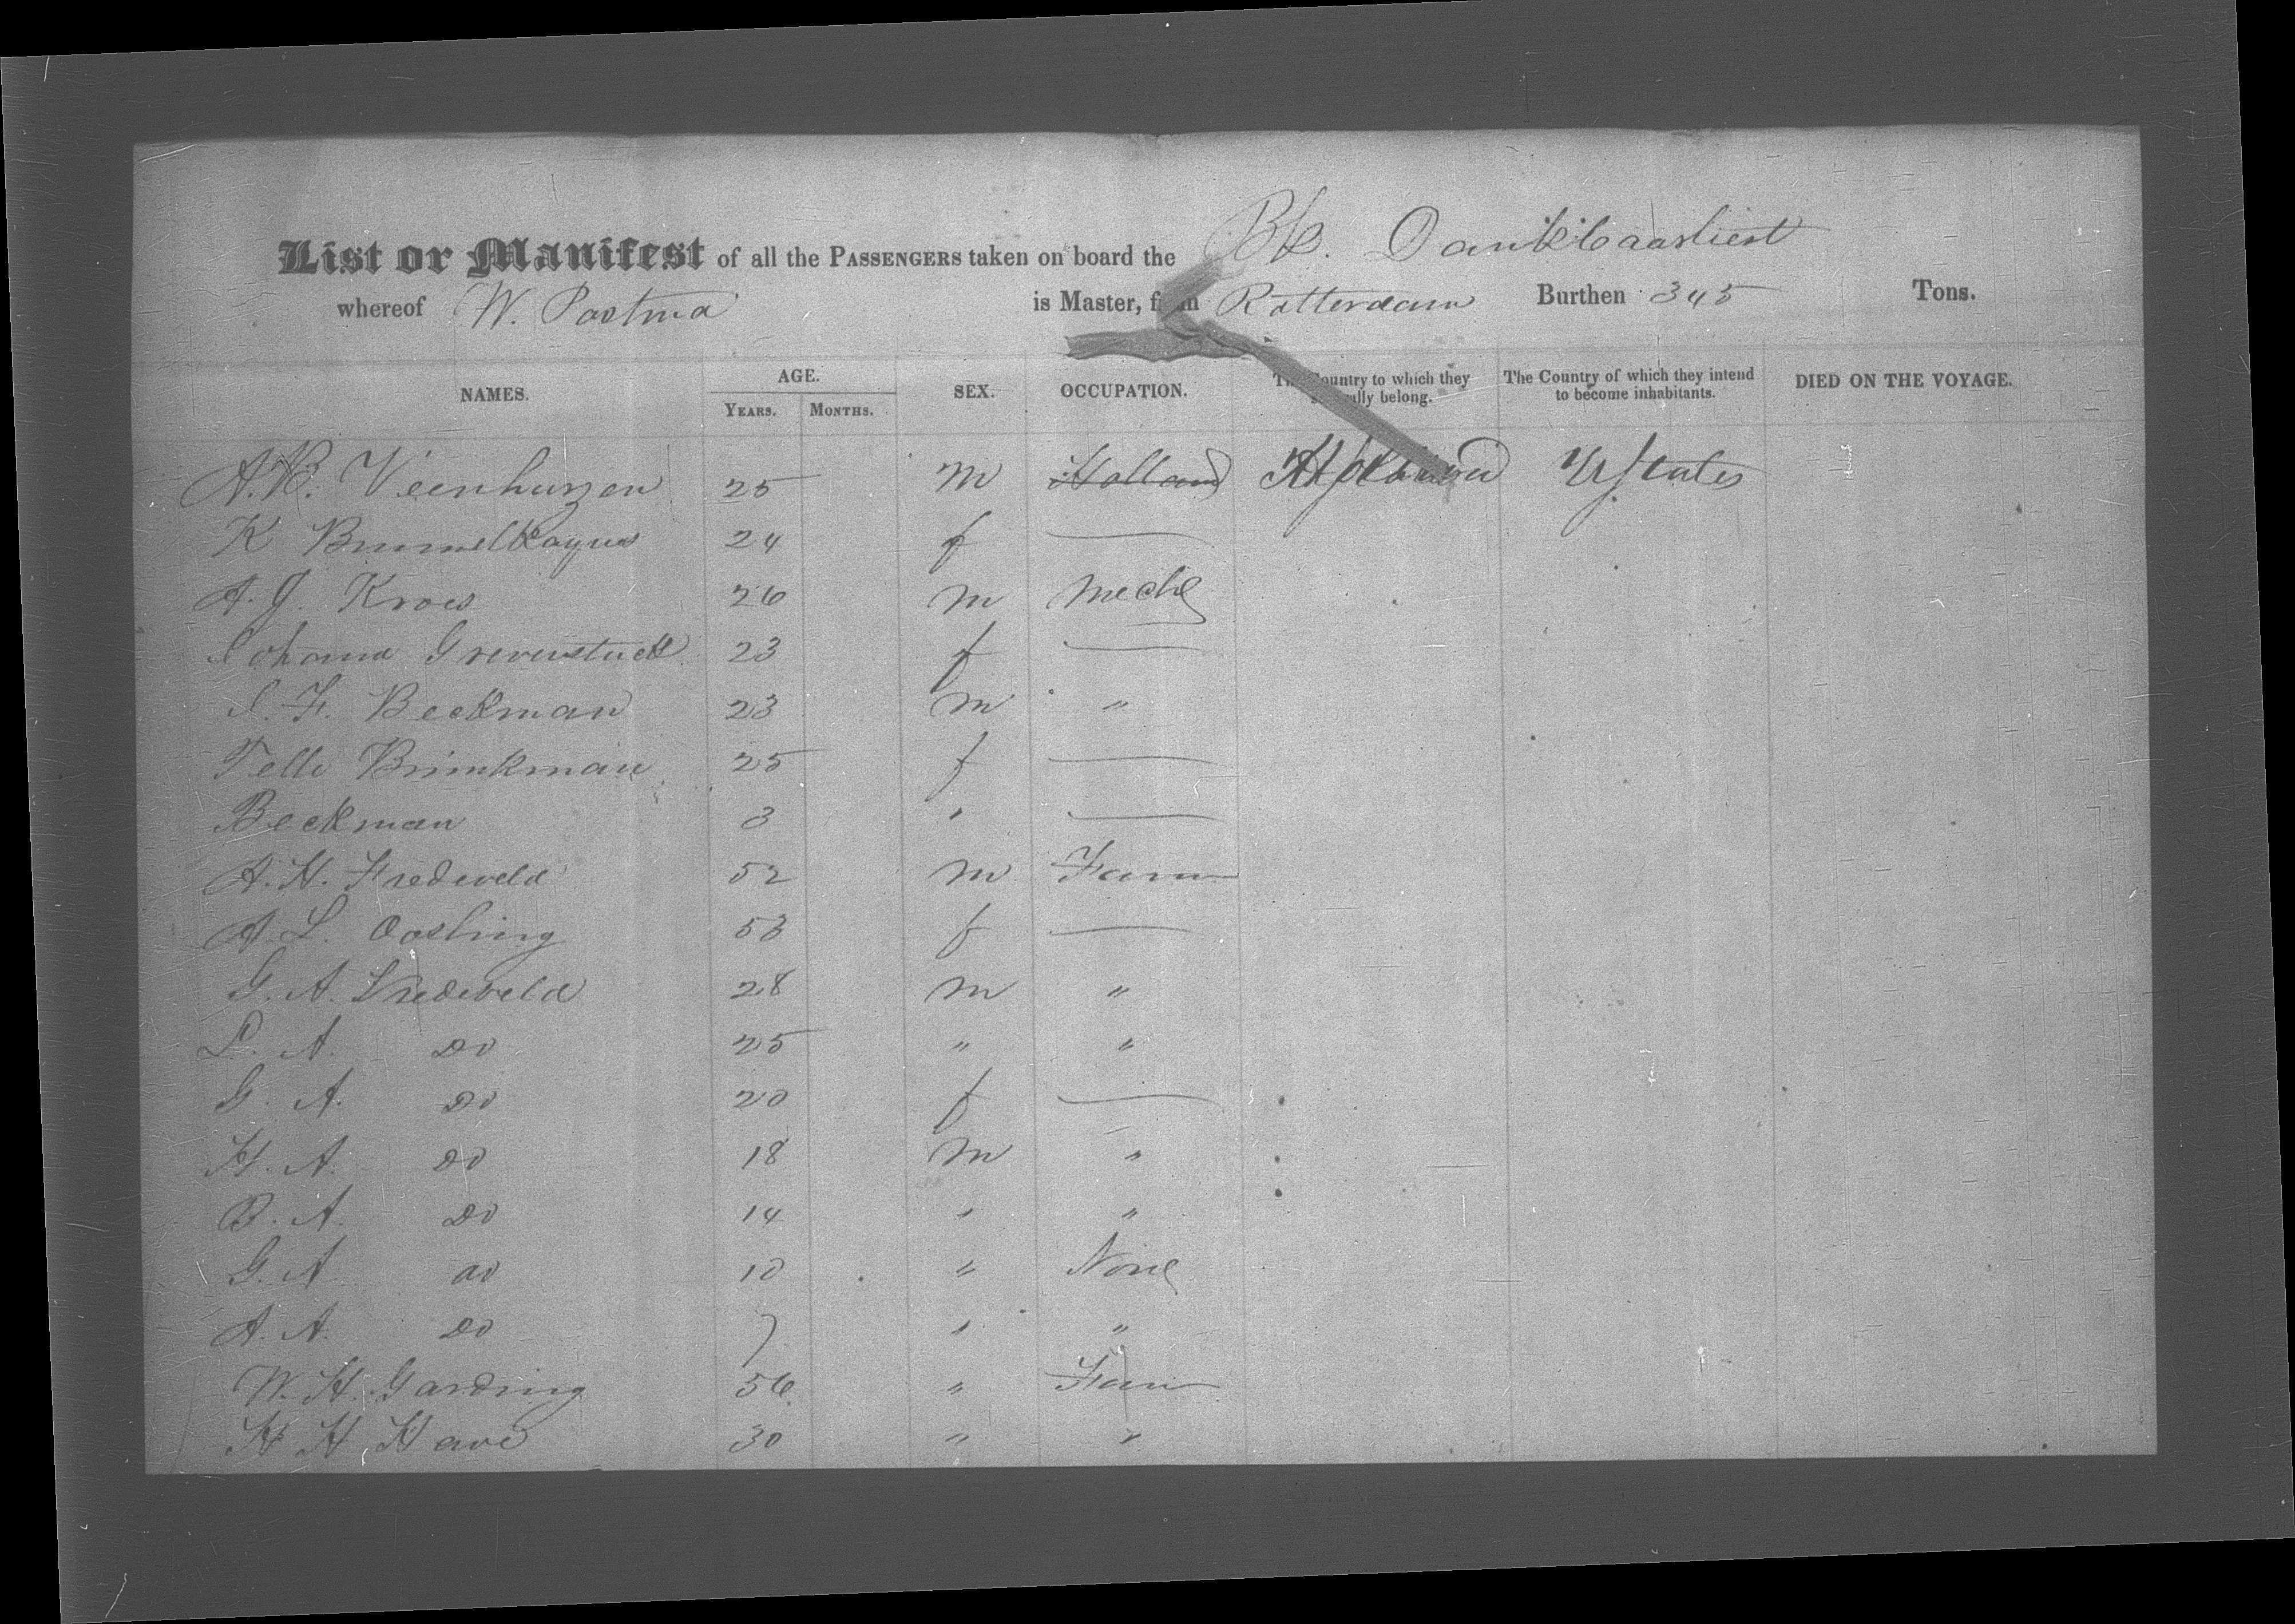 List or Manifest of all the PASSENGERS taken on board the Bk. Dankbaarheit
whereof W. Postma is Master, from Rotterdam Burthen 345 Tons.
NAMES. AGE. YEARS. MONTHS. SEX. OCCUPATION. The Country to which they severally belong. The Country of which they intend to become inhabitants. DIED ON THE VOYAGE.
A. B. Veenhuyzen 25 m Holland Holland U States
K 24 f —
A. J. Kroes 26 m Mech
Johanna 23 f —
J. F. Beekman 23 m "
Telli Brinkman 25 f —
Beekman 3 " —
A. H. Fredeveld 52 m Farm
A. L. Oosling 53 f —
G. A. Vredeveld 28 m "
L. A. Do 25 " "
G. A. Do 20 f —
H. A. Do 18 m "
B. A. Do 14 " "
G. A. do 10 " None
A. A. Do 7 " "
W. H. Garding 56 " Farm
H H Have 30 " "